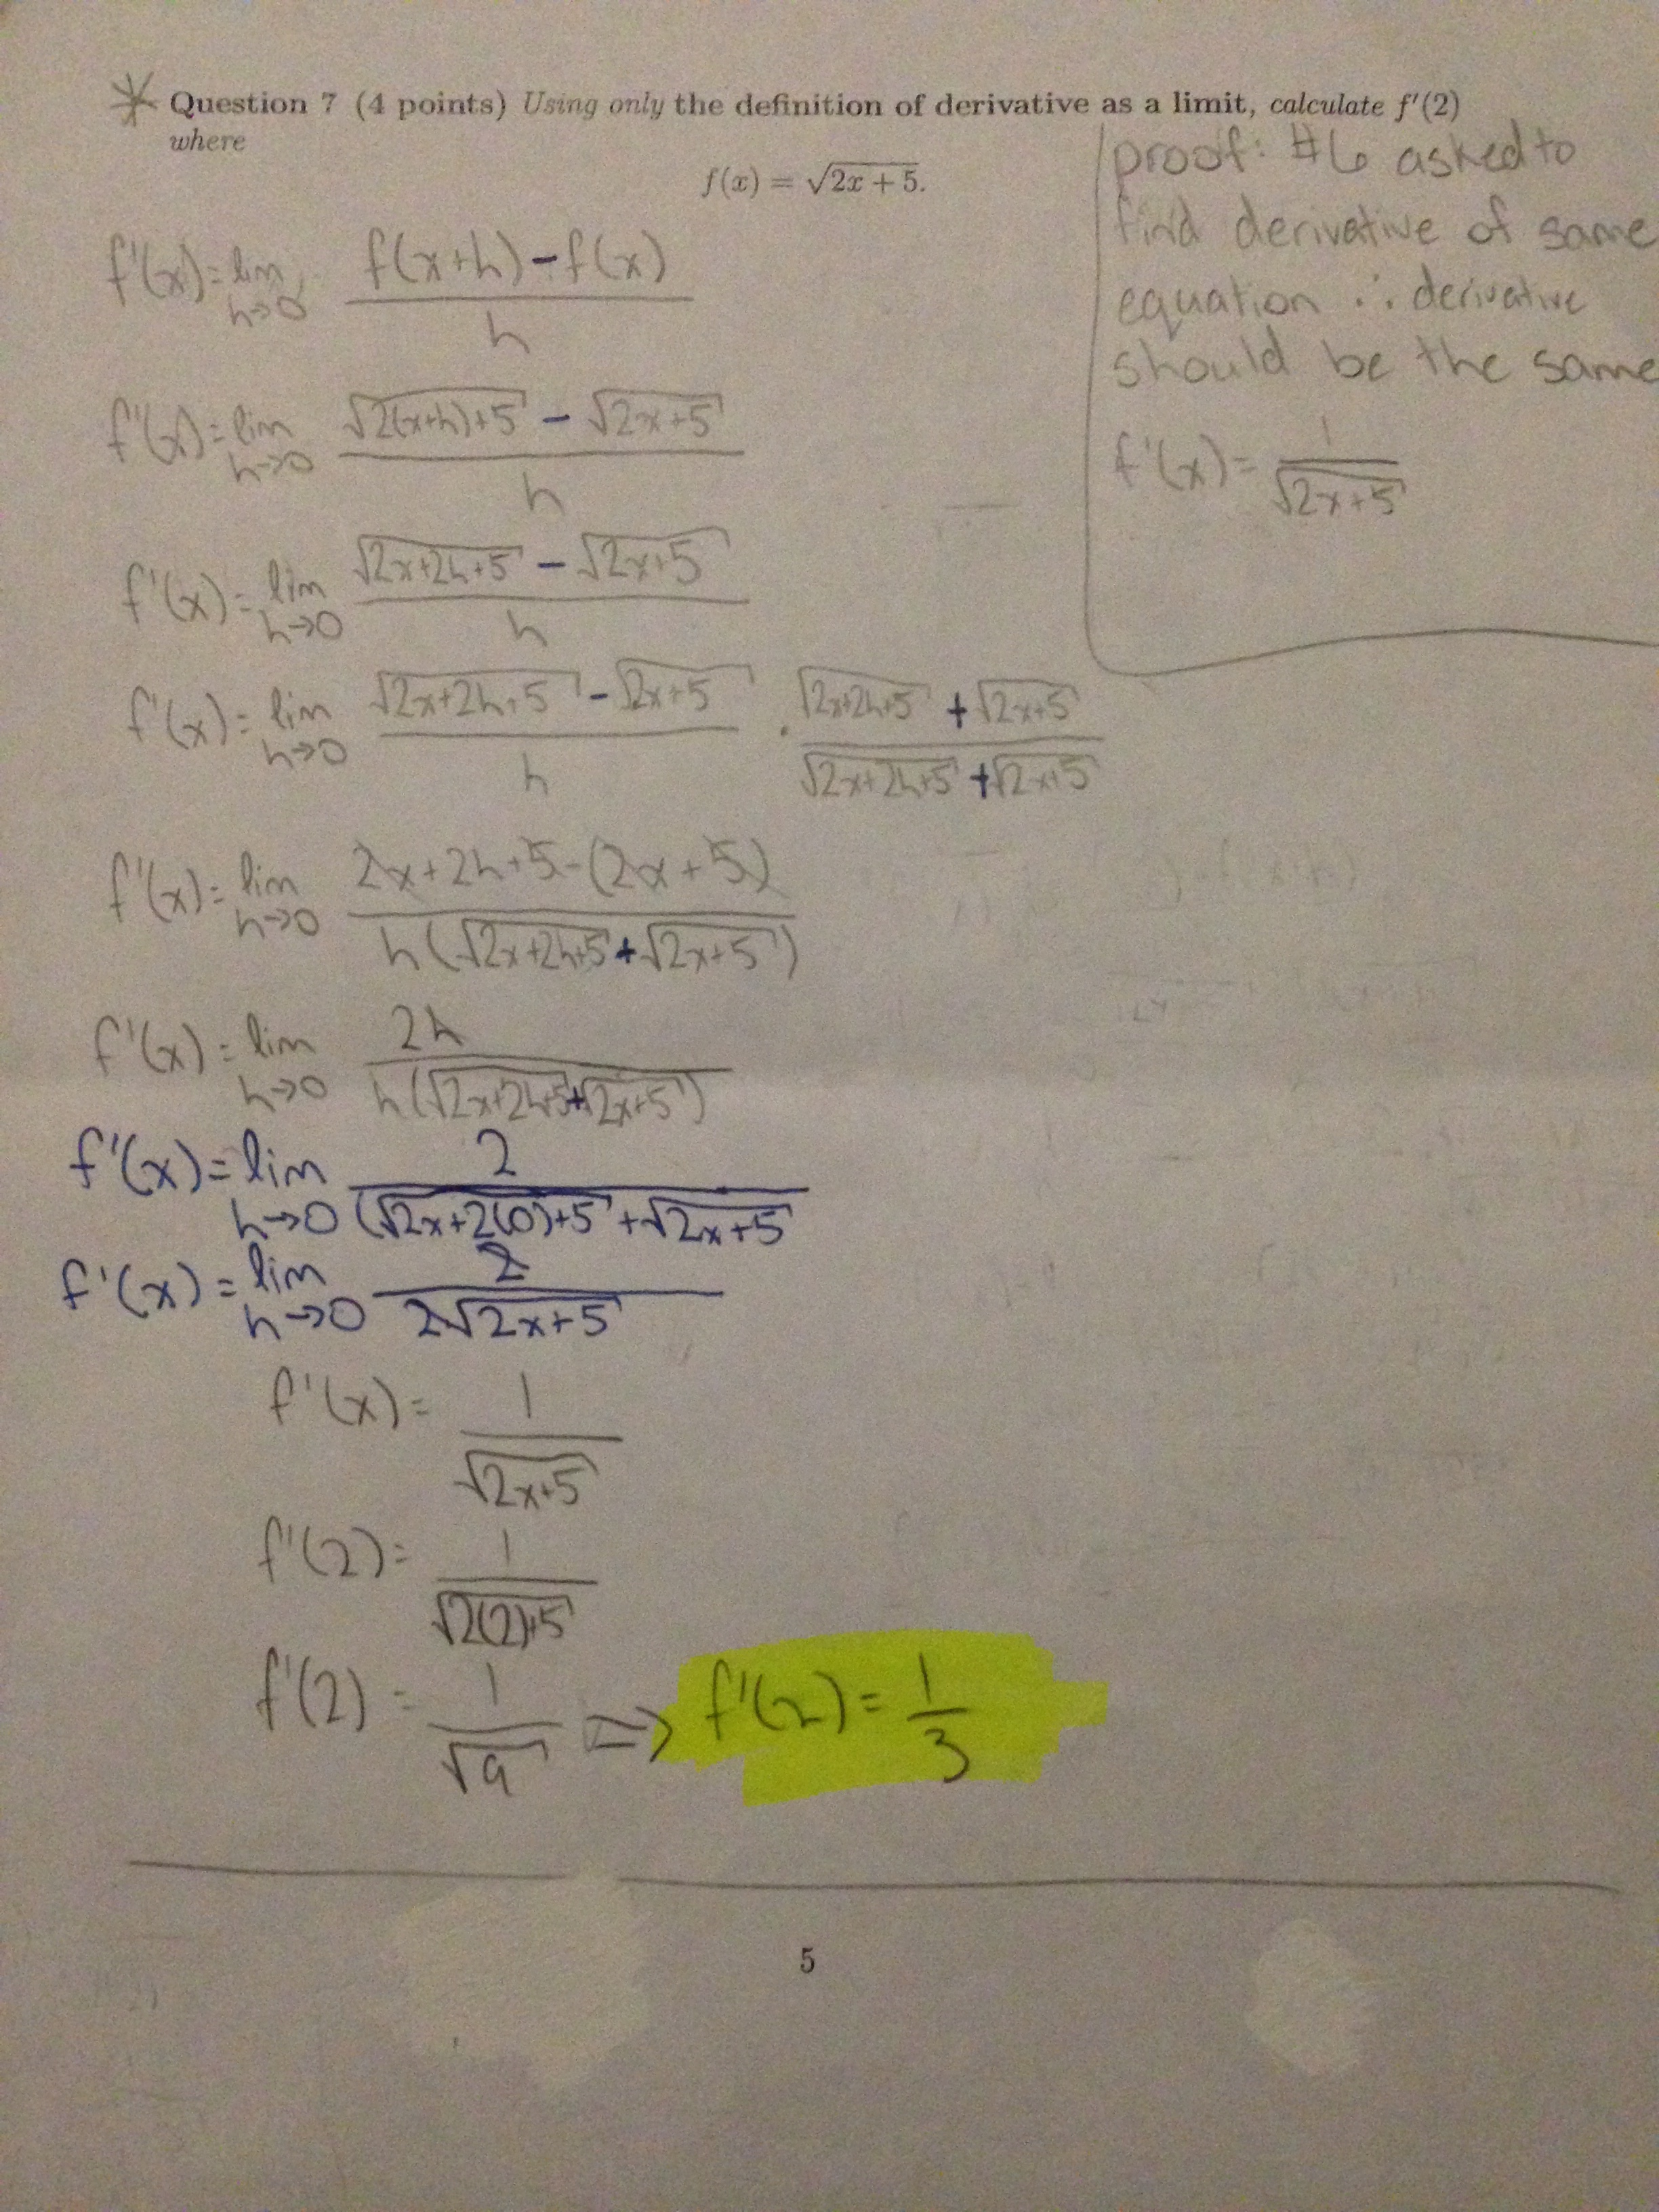 Question 7 (4 points) Using only the definition of derivative as a limit, calculate f'(2)
where
f(x) = √(2x + 5).
proof: #6 asked to
find derivative of same
equation ∴ derivative
should be the same
f'(x) = 1/√(2x+5)
f'(x) = lim h→0 (f(x+h) - f(x))/h
f'(x) = lim h→0 (√(2(x+h)+5) - √(2x+5))/h
f'(x) = lim h→0 (√(2x+2h+5) - √(2x+5))/h
f'(x) = lim h→0 (√(2x+2h+5) - √(2x+5))/h · (√(2x+2h+5) + √(2x+5))/(√(2x+2h+5) + √(2x+5))
f'(x) = lim h→0 (2x+2h+5-(2x+5))/(h(√(2x+2h+5) + √(2x+5)))
f'(x) = lim h→0 2h/(h(√(2x+2h+5) + √(2x+5)))
f'(x) = lim h→0 2/(√(2x+2(0)+5) + √(2x+5)
f'(x) = lim h→0 2/(2√(2x+5))
f'(x) = 1/√(2x+5)
f'(2) = 1/√(2(2)+5)
f'(2) = 1/√9 ⇒ f'(2) = 1/3
5